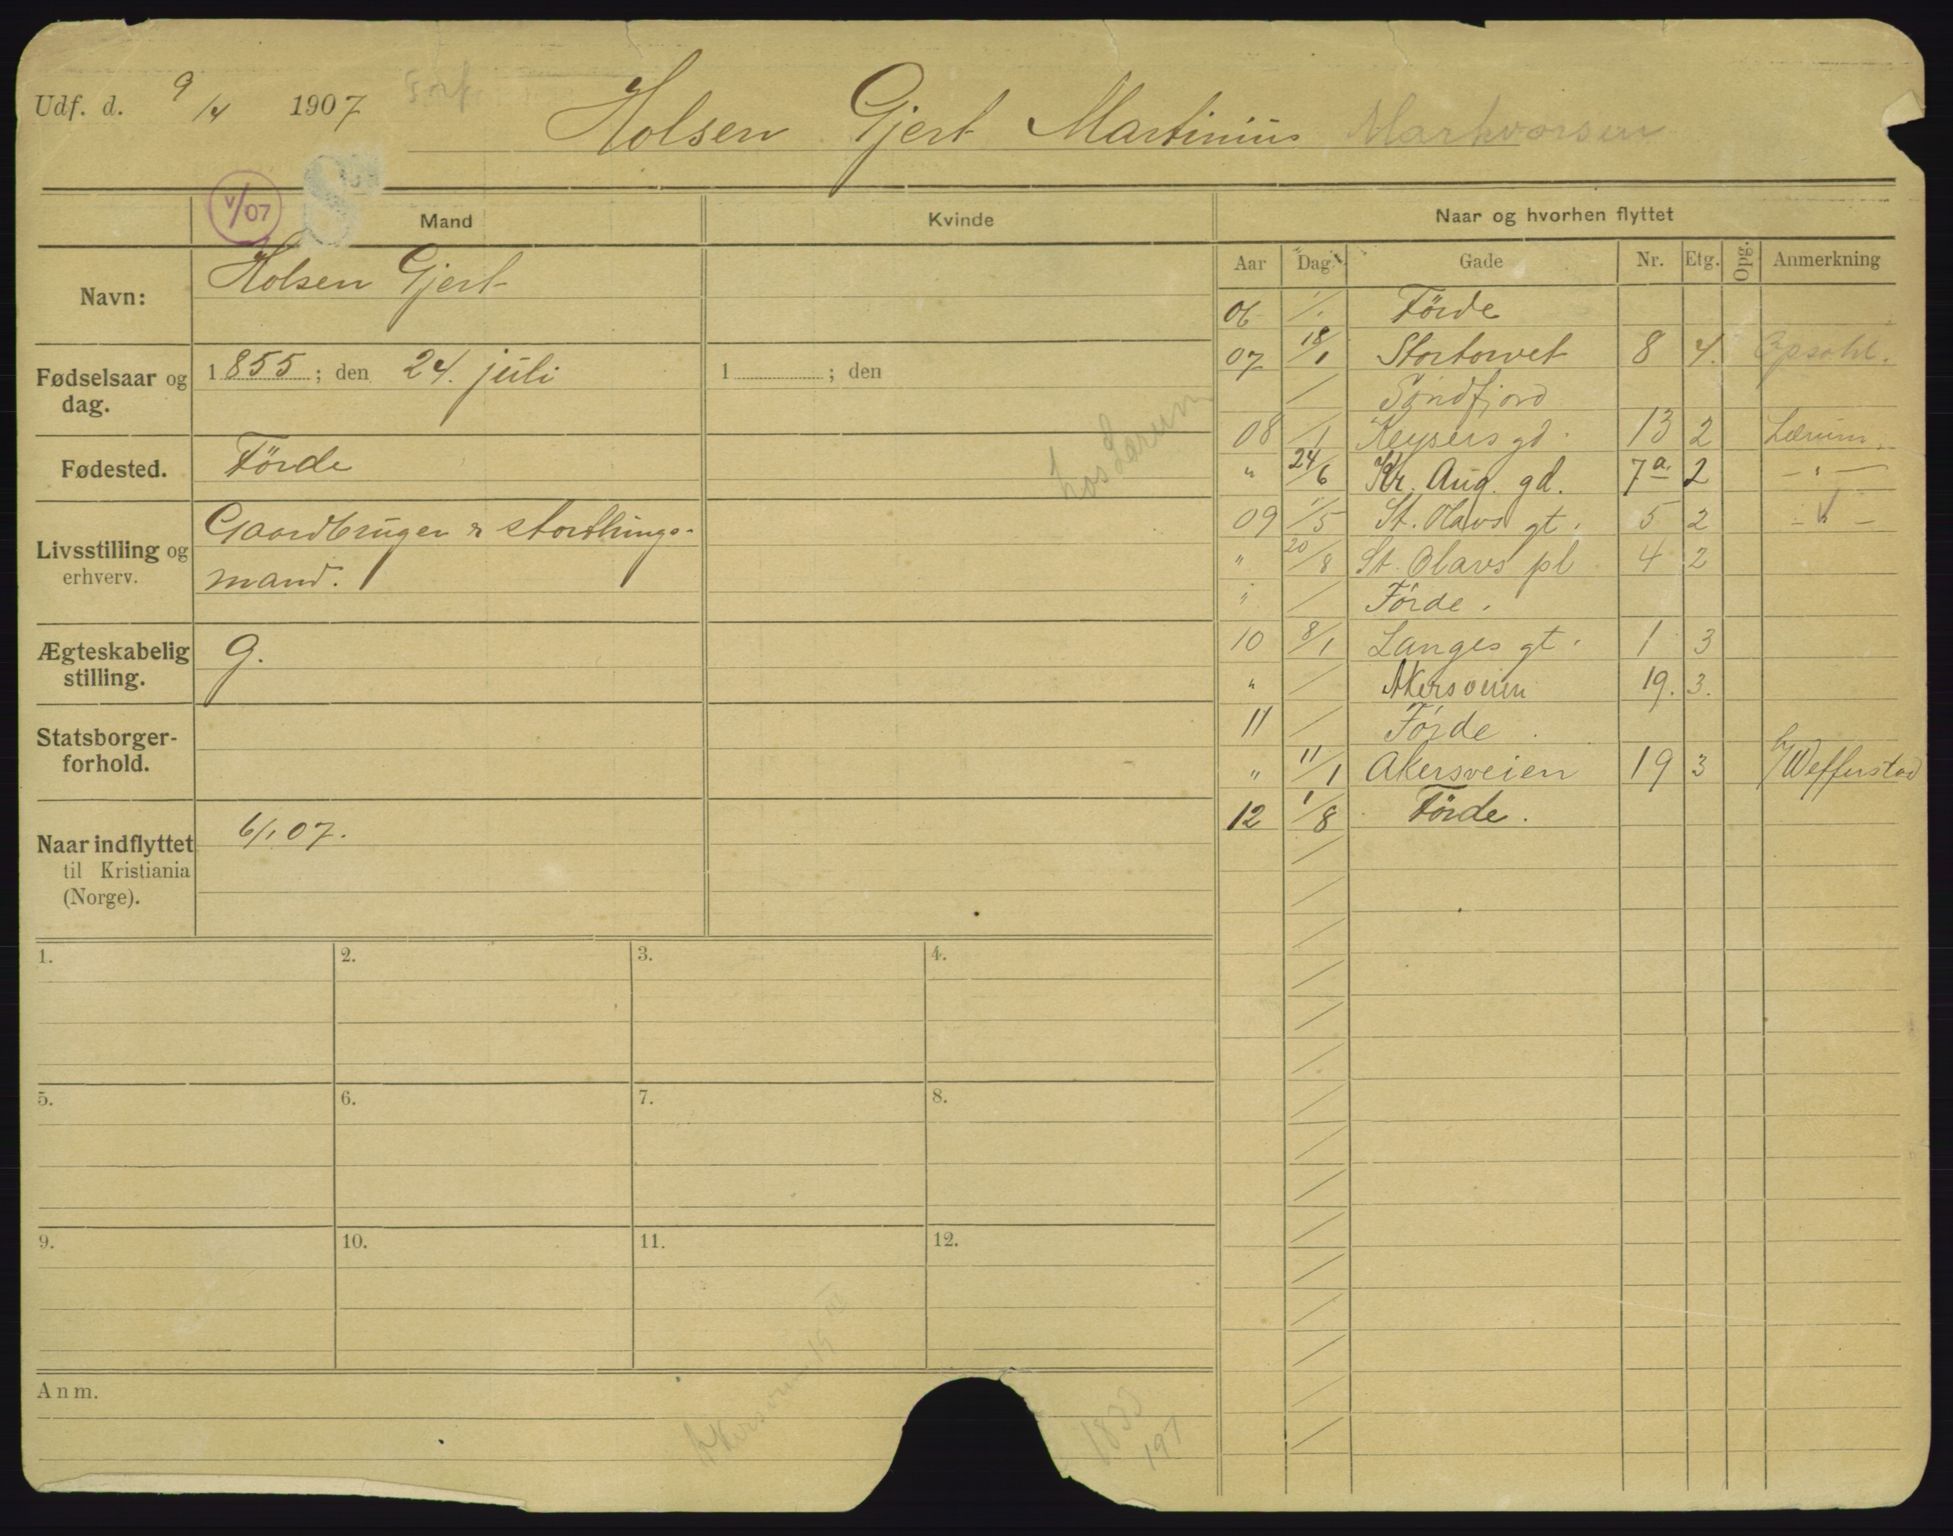 Udf. d. 9/4 1907
Holsen Gjert Martinius Markvorsen
V/07
Mand
Kvinde
Naar og hvorhen flyttet
Navn:
Holsen Gjert
Fødselsaar og dag.
1855; den 24. juli
1 ; den
Fødested.
Förde
hos Lærum
Livsstilling og erhverv.
Gaardbruger & storthings-
mand.
Ægteskabelig stilling.
g.
Statsborger-forhold.
Naar indflyttet til Kristiania (Norge).
6/1 07.
Aar Dag Gade Nr. Etg. Opg. Anmerkning
06 1/1 Förde
07 18/1 Stortorvet 8 4. Opsahl.
/ Söndfjord
08 /1 Keysers gd. 13 2 Lærum.
" 24/6 Kr. Aug. gd. 7a. 2 — " —
09 1/5 St. Olavs gt. 5 2 — " —
" 20/8 St. Olavs pl 4 2
" / Förde.
10 8/1 Langes gt. 1 3
" / Akersveien 19. 3.
11 / Förde.
" 11/1 Akersveien 19 3
12 1/8 Förde.
1.
2.
3.
4.
5.
6.
7.
8.
9.
10.
11.
12.
Anm.
Akersveien 19 III